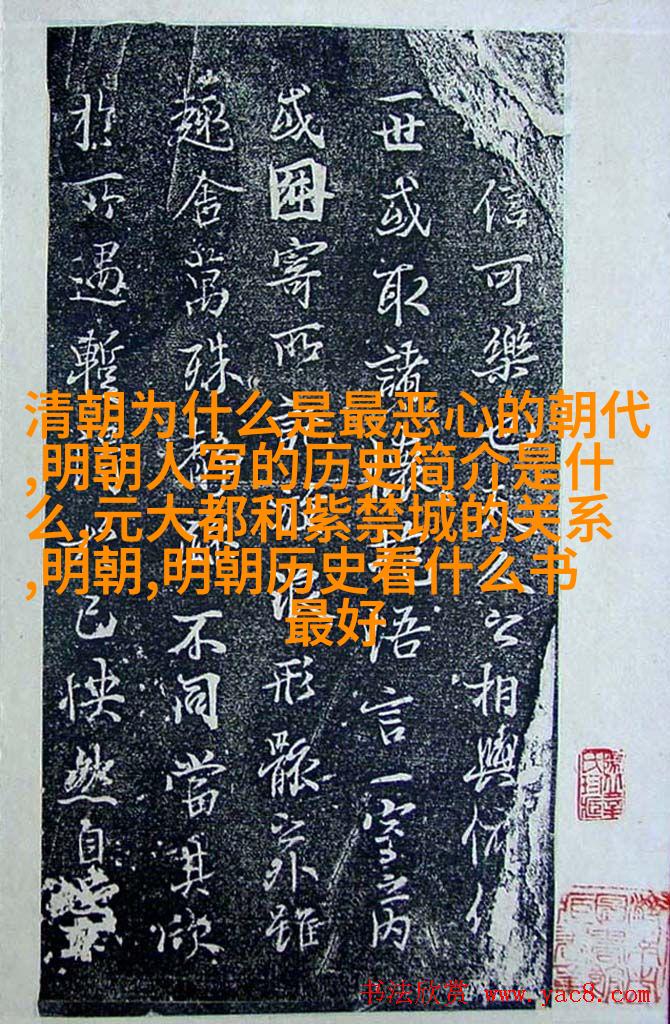 信可樂也人之相與俯仰
一世或取諸懷抱悟言一室之內
或因寄所浪形骸之外雖
趣舍萬殊不同當其欣
於所遇暫得於己怏然自足
清朝为什么是最恶心的朝代
,明朝人写的历史简介是什
么,元大都和紫禁城的关系
,明朝,明朝历史看什么书
最好
书法欣赏 www.yac8.com